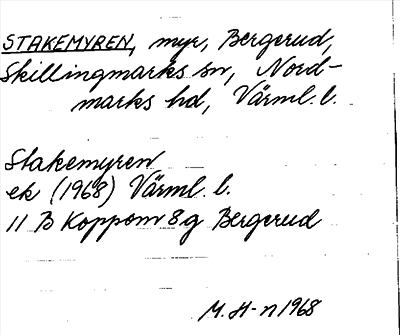 STAKEMYREN, myr, Bergerud,
Skillingmarks sn, Nord-
marks hd, Värml. l.
Stakemyren
ek (1968) Värml. l.
11 B Koppom 8 g Bergerud
M. H-n 1968